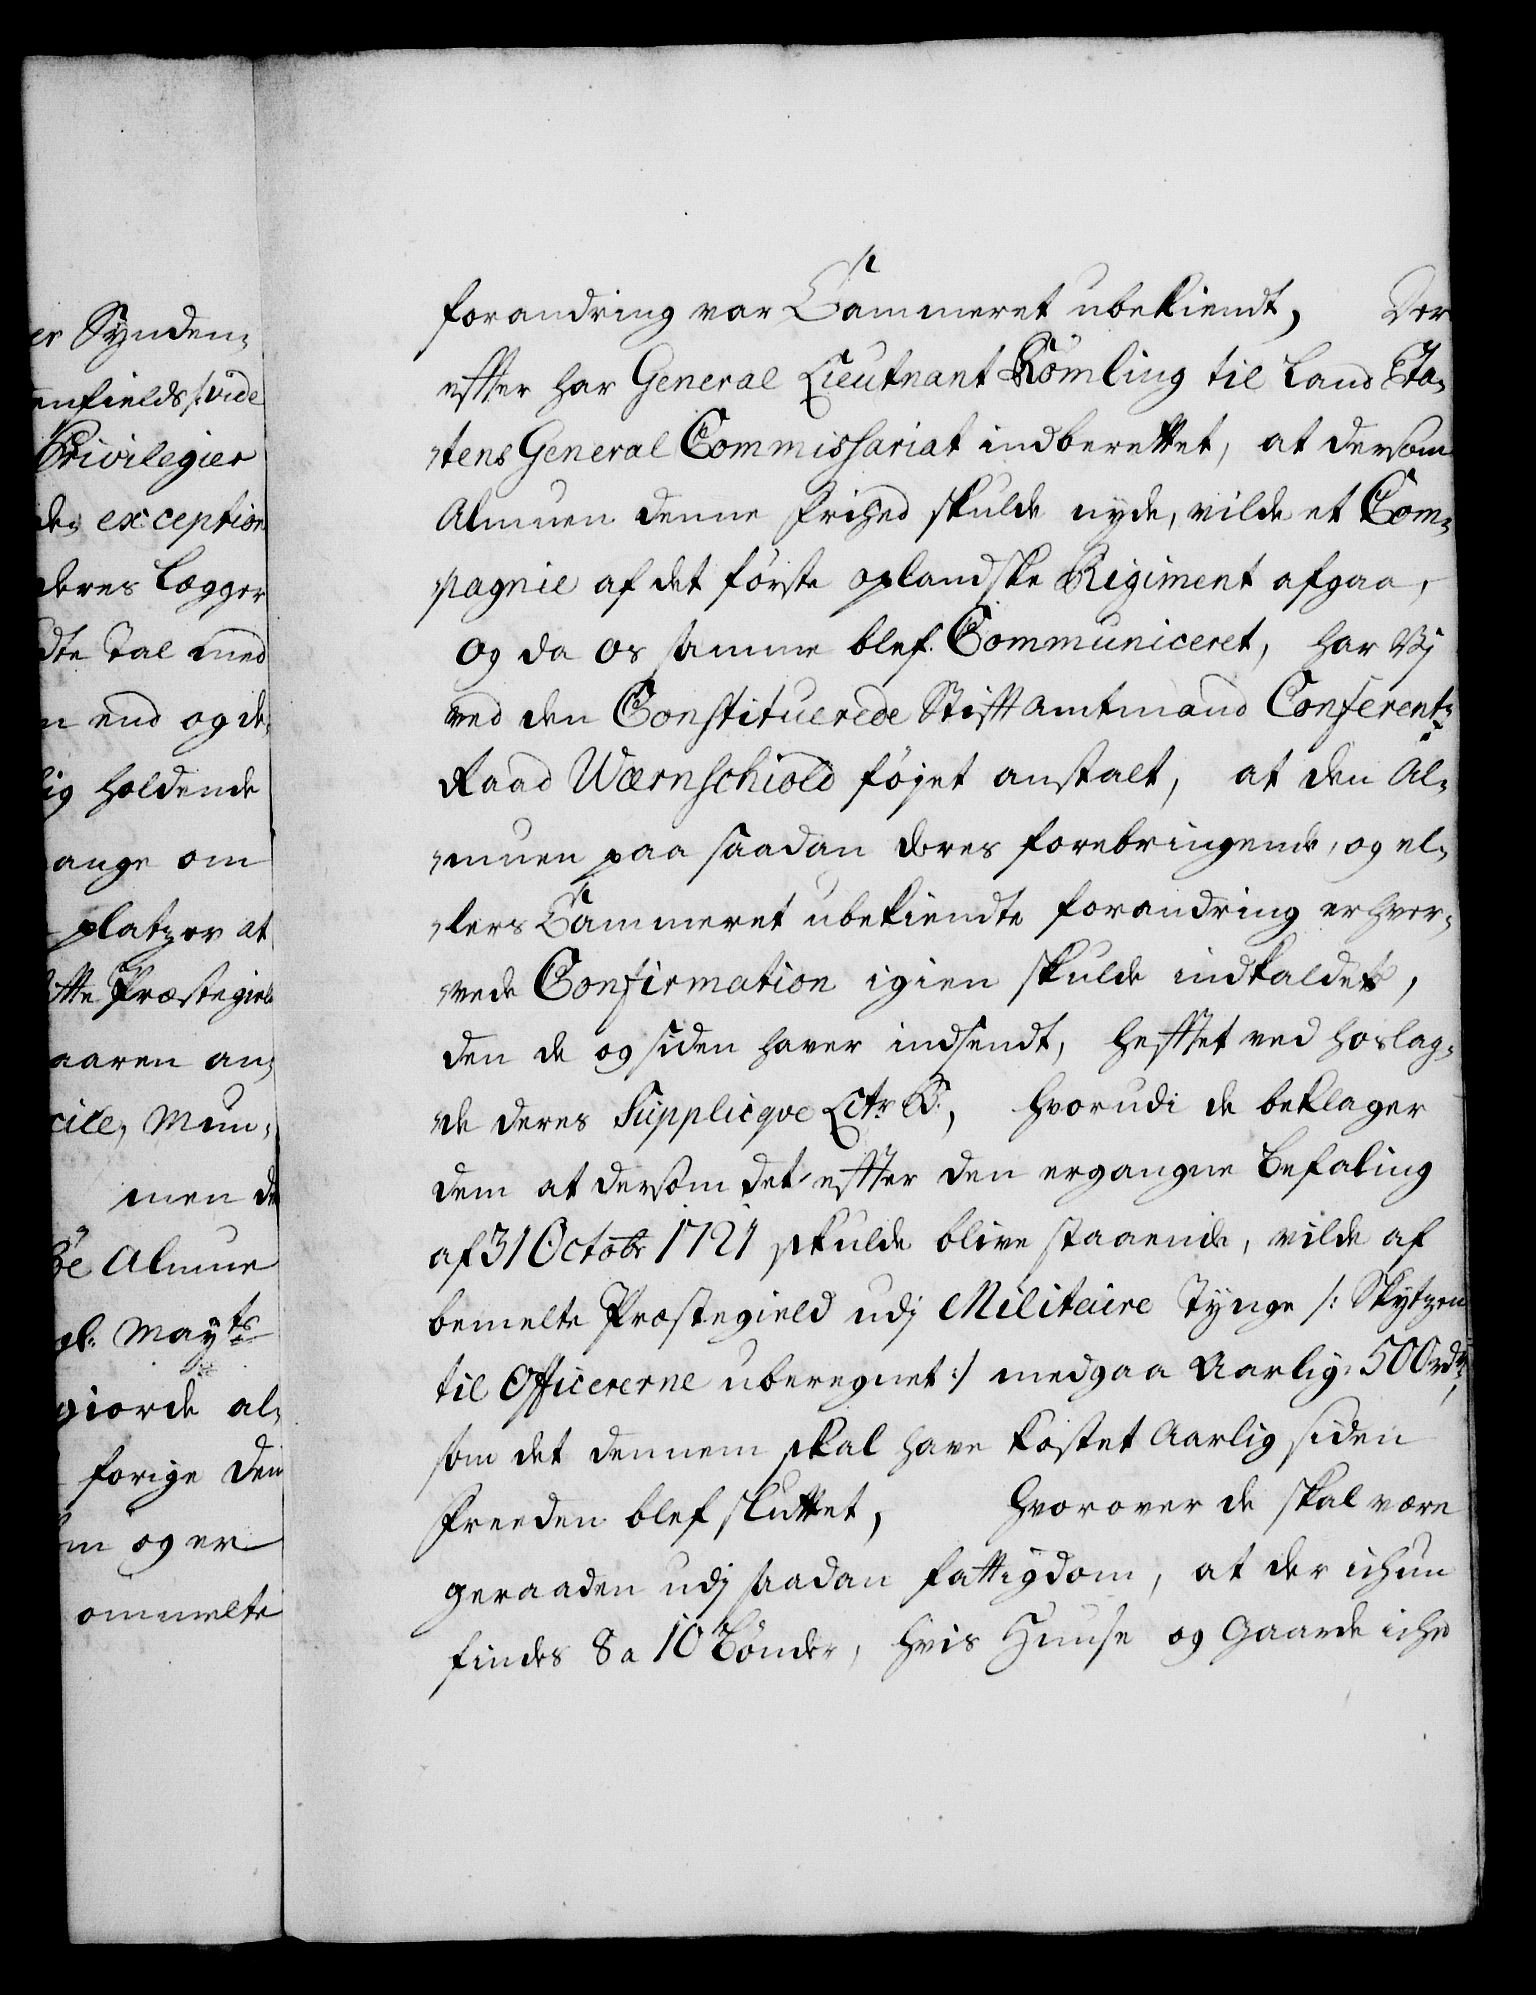 er Synden,
enfields /: vide
Privilegier
de, exception
deres Lægger
dte Tal med
n end og de,
lig holdende
ange om
platzer at
tte Præstegield
aaren an,
cile, Mun,
men de
Alm̄ue
gl: Mayts
giorde al,
forige den
m og er
ommelte
forandring var Cammeret ubekiendt, Der
effter har General Lieutnant Römling til Land Eta,
,tens General Commissariat indberettet, at dersom
Almuen denne frihed skulde nyde, vilde et Com,
,pagnie af det förste oplandske Regiment afgaa,
Og da os samme blef Communiceret, har Vj
ved den Constituerede Stifft Amtmand Conferentz
Raad Wærnschiold föjet anstalt, at den Al,
,muen paa saadan deres forebringende, og el,
,lers Cammeret ubekiendte forandring erhver,
,vede Confirmation igien skulde indkaldes,
den de og siden haver indsendt, hefftet ved hoslag,
,de deres Supplicqve Litr B:, hvorudi de beklager
dem at dersom det effter den ergangne Befaling
af 31 Octobr 1721 skulde blive staaende, vilde af
bemelte Præstegield udj Militaire Tynge /: Skytzen
til Officererne uberegnet :/ medgaa Aarlig 500 rdr,
som det dennem skal have kostet Aarlig siden
Freeden blef sluttet, hvorover de skal være
geraaden udj saadan fattigdom, at der ichun
findes 8 a 10 Bönder, hvis Huuse og Gaarde iche